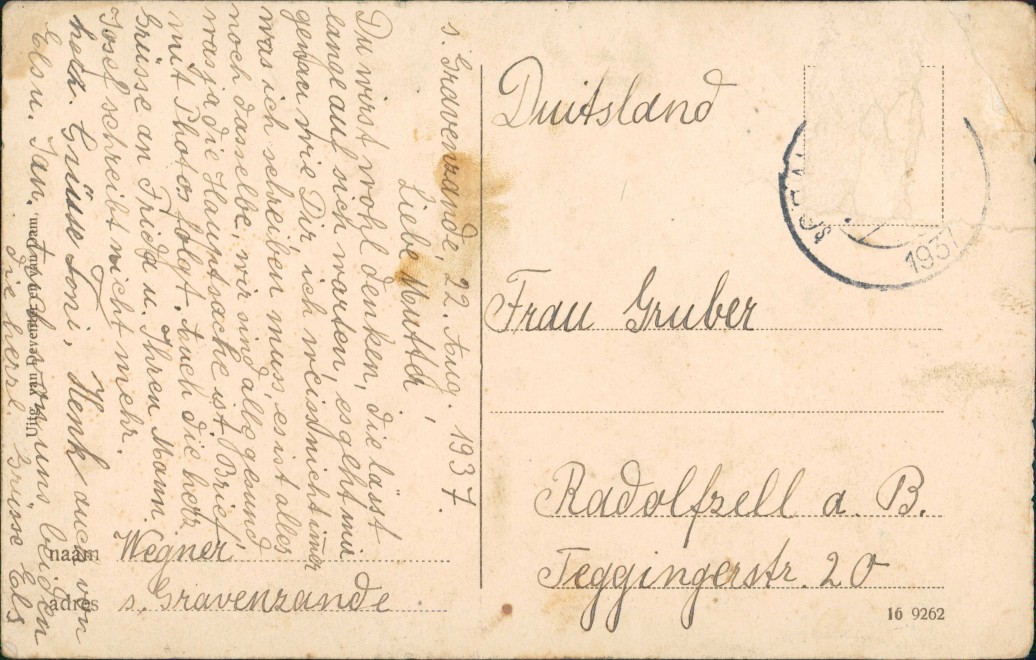 s. Gravenzande, 22. Aug. 1937.
Liebe Mutter!
Du wirst wohl denken, die lässt
lange auf sich warten, es geht mir
genau wie Dir, ich weiss nicht imer
was ich schreiben muss, es ist alles
noch dasselbe, wir sind alle gesund
was ja die Hauptsache ist. Brief
mit Photos folgt. Auch die herz.
Grüsse an Frida u. Ihren Mann.
Josef schreibt nicht mehr.
herz. Grüsse Toni, Henk auch von
Els u. Jan. auch von uns beiden
die herzl. Grüsse Els
Duitsland
Frau Gruber
Radolfzell a. B.
Teggingerstr. 20
naam Wegner.
adres s. Gravenzande
1937
16 9262